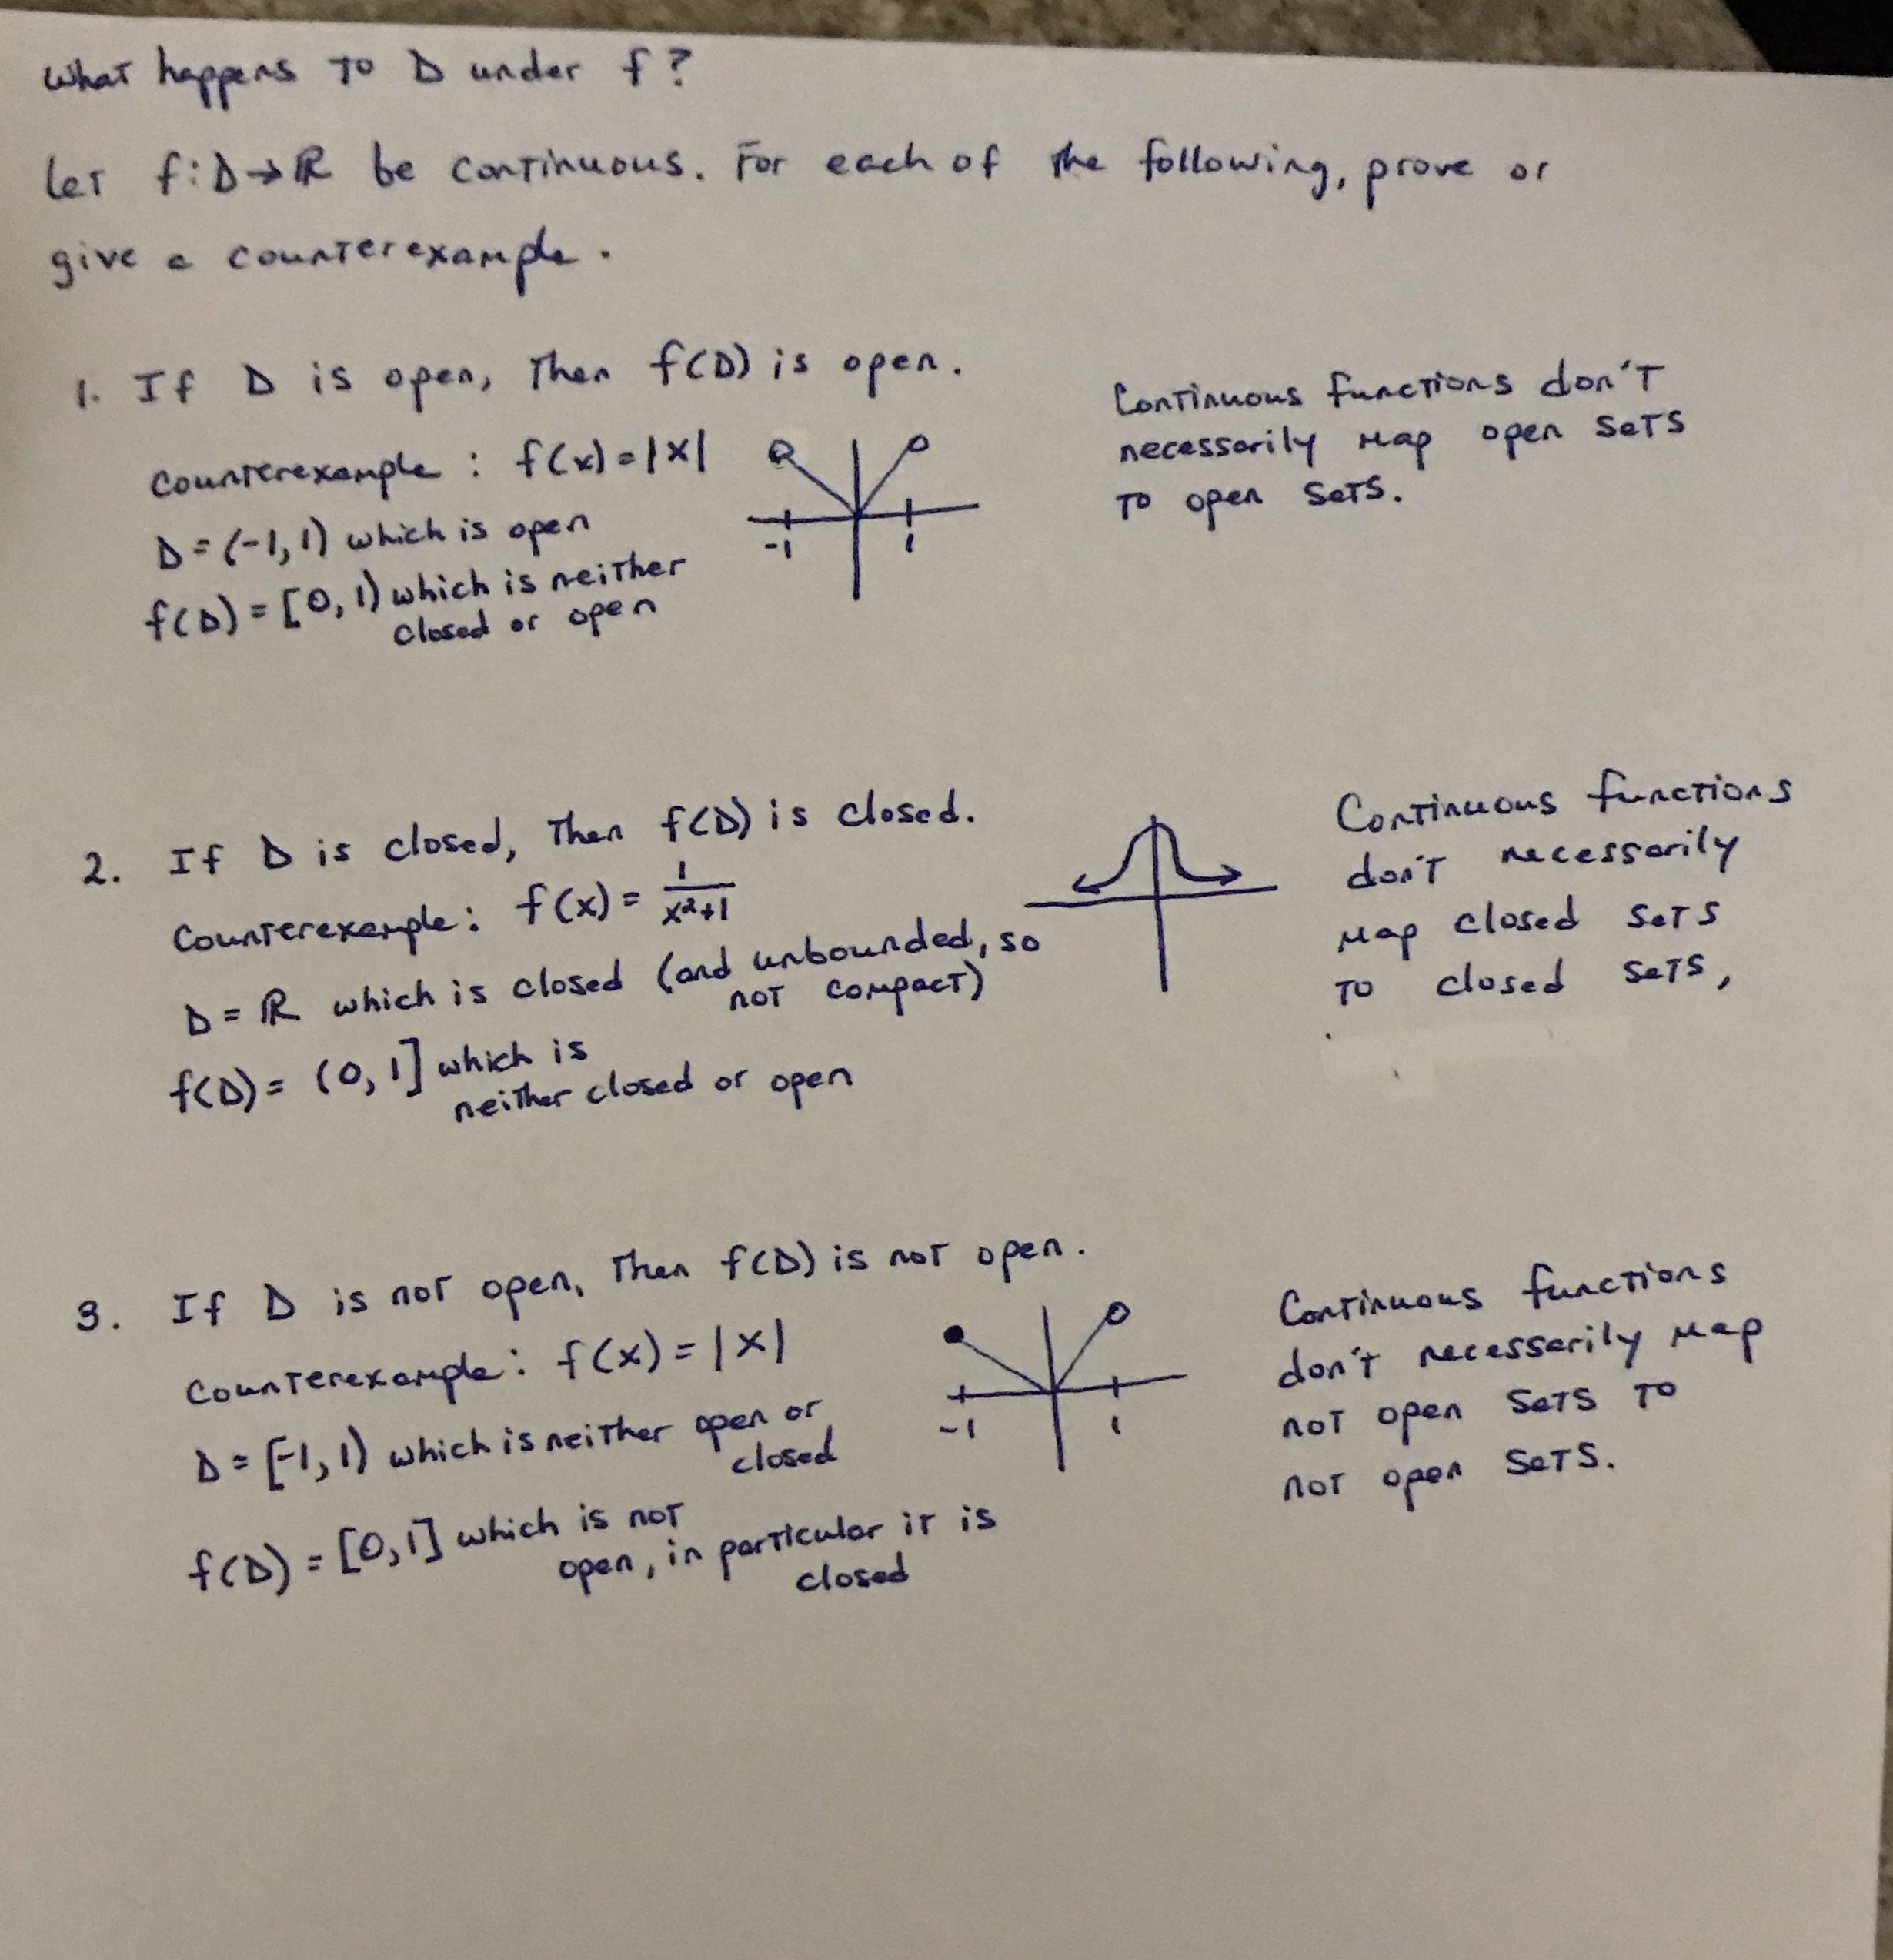 What happens to D under f?
Let f:D→ℝ be continuous. For each of the following, prove or
give a counterexample.
1. If D is open, then f(D) is open.
Counterexample: f(x)=|x|
D=(-1,1) which is open
f(D)=[0,1) which is neither
closed or open
-1 1
Continuous functions don't
necessarily map open sets
to open sets.
2. If D is closed, then f(D) is closed.
Counterexample: f(x)= 1/(x²+1)
D=ℝ which is closed (and unbounded, so
not compact)
f(D)= (0,1] which is
neither closed or open
Continuous functions
don't necessarily
map closed sets
to closed sets,
3. If D is not open, then f(D) is not open.
Counterexample: f(x)=|x|
D=[-1,1) which is neither open or
closed
f(D)=[0,1] which is not
open, in particular it is
closed
-1 1
Continuous functions
don't necessarily map
not open sets to
not open sets.